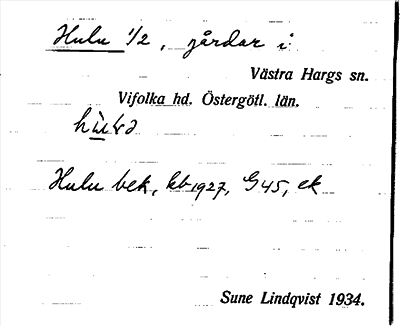 Hulu 1/2, gårdar i
Västra Hargs sn.
Vifolka hd. Östergötl. län.
Hulu bek, kb 1927, G45, ek
Sune Lindqvist 1934.